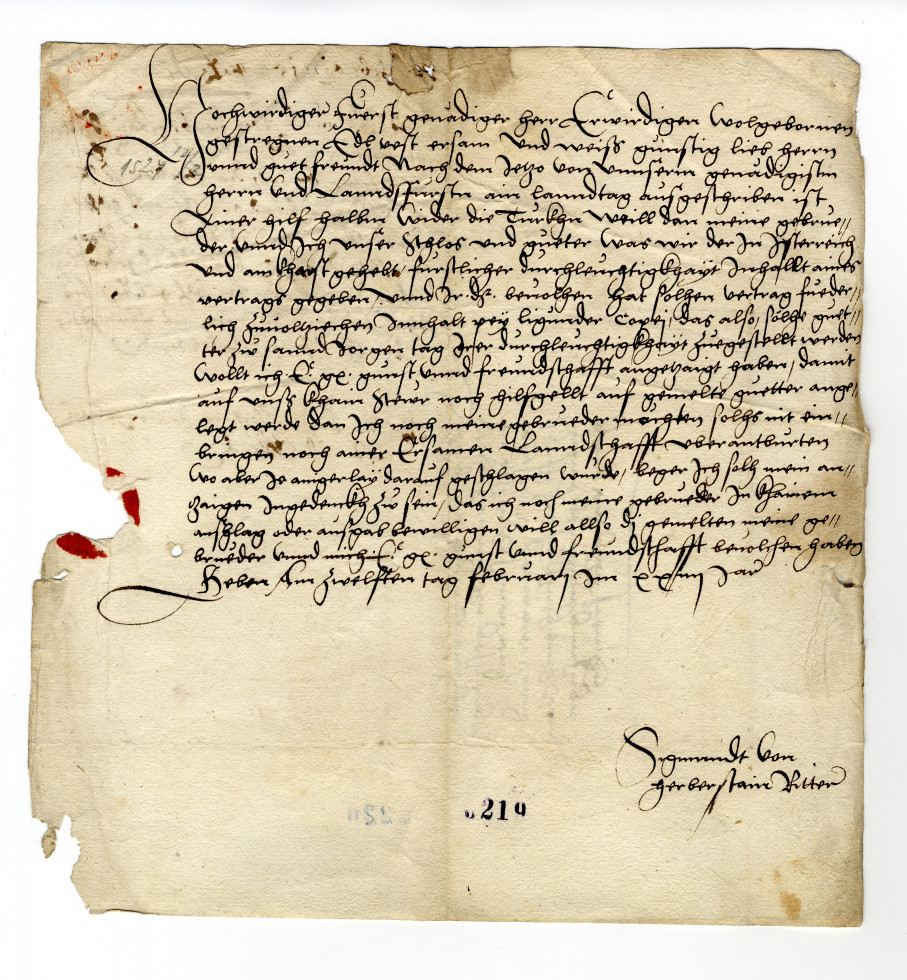 Hochwirdiger Fuerst genadiger herr Erwirdigen Wolgebornen
gestrengen Edl vest ersam und weiss gunstig lieb herrn
1527 12/2
unnd guet freundt Nach dem Jetzo von unnserm genadigistn
herrn und Lanndsfurstn ain lanndtag ausgeschriben ist
Ainer hilf halbn wider die Turkhn Weill dan meine gebrue-
der unnd Ich unser Schlos und gueter was wir der In Isterreich
und am Kharst gehebt furstlicher durchleuchtigkhayt Inhallt aines
vertrags gegeben, unnd Ir. dt. bevolhen hat solhen vertrag fueder-
lich zuvolziechen Innhalt pey ligunder Copej, das also, solhe guet-
ter zw sannd Jorgen tag Irer durchleuchtigkhayt zuegestellt werden
Wollt ich E. g. gunst unnd freundschafft angetzaigt haben, damit
auf unss kham Stewr noch hilfgellt auf gemelte guetter ange-
legt werde dan Ich noch meine gebrueder mochten solhs nit ein-
bringen noch ainer Ersamen Lanndschafft uberantburten
wo aber Je ainigerlay darauf geschlagen wurde, beger Ich solh mein an-
zaigen Ingedenkh zw sein, das ich noch meine gebrueder In khainem
anschlag oder ausgab bewilligen will allso dj gemelten meine ge-
brueder unnd mich E. g. gunst unnd freundschafft bevolchen haben
Geben Am zwelften tag februarj Im xxiiij Jar
Sigmundt von
herberstain Ritter
219